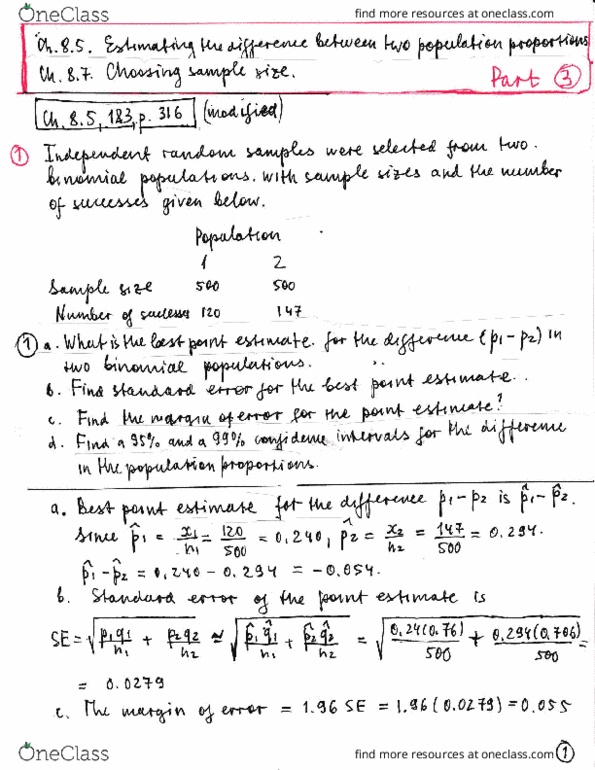 OneClass
find more resources at oneclass.com
Ch. 8.5. Estimating the difference between two population proportions
Ch. 8.7. Choosing sample size.
Part 3
Ch. 8.5, 183, p. 316 (modified)
1 Independent random samples were selected from two
binomial populations. with sample sizes and the number
of successes given below.
Population
1 2
Sample size 500 500
Number of success 120 147
1 a. What is the best point estimate. for the difference (p1-p2) in
two binomial populations.
b. Find standard error for the best point estimate..
c. Find the margin of error for the point estimate?
d. Find a 95% and a 99% confidence intervals for the difference
in the population proportions.
a. Best point estimate for the difference p1-p2 is p̂1-p̂2.
Since p̂1 = x1/n1 = 120/500 = 0.240, p̂2 = x2/n2 = 147/500 = 0.294.
p̂1-p̂2 = 0.240 - 0.294 = -0.054.
b. Standard error of the point estimate is
SE = √(p1q1/n1 + p2q2/n2) ≃ √(p̂1q̂1/n1 + p̂2q̂2/n2) = √(0.24(0.76)/500 + 0.294(0.706)/500) =
= 0.0279
c. The margin of error = 1.96 SE = 1.96(0.0279) = 0.055
OneClass
find more resources at oneclass.com
1